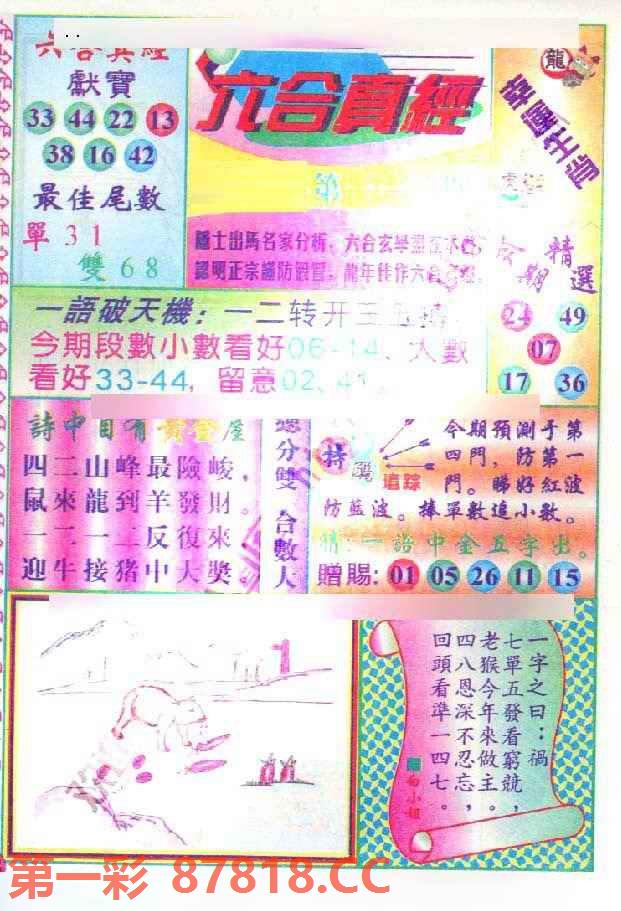 六合真經
獻寶
33 44 22 13
38 16 42
最佳尾數
單 3 1
雙 6 8
六合真經
龍
隱士出馬名家分析，六合玄學盡在本
認明正宗謹防假冒，龍年佳作六合
期
精選
24 49
07
17 36
一語破天機：一二转开三五
今期段數小數看好06-14、大數
看好33-44，留意02、41
詩中自有黃金屋
四二山峰最險峻，
鼠來龍到羊發財。
一二一二反復來
迎牛接猪中大獎。
總分雙 合數大
特
追踪
今期預測于第
四門，防第一
門。睇好紅波
防藍波。捧單數追小數。
猜：一語中金五字出。
贈賜：01 05 26 11 15
1
一字之曰：禍
七單五發看窮競，
老猴今年來做主。
四八恩深不忍忘，
回頭看準一四七。
白小姐
第一彩 87818.CC